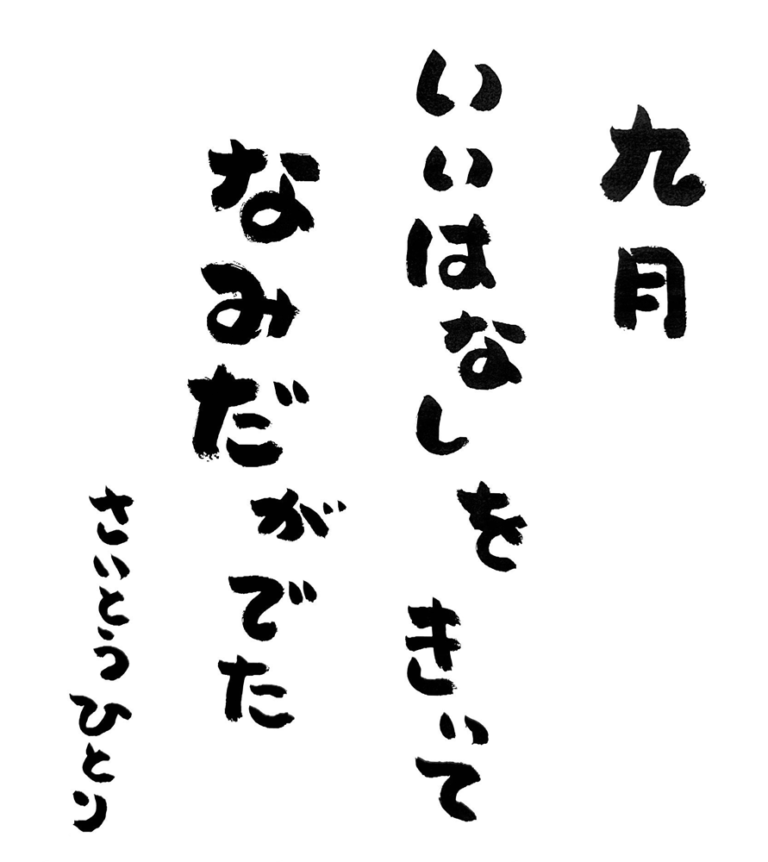 九月
いいはなしをきいて
なみだがでた
さいとうひとり